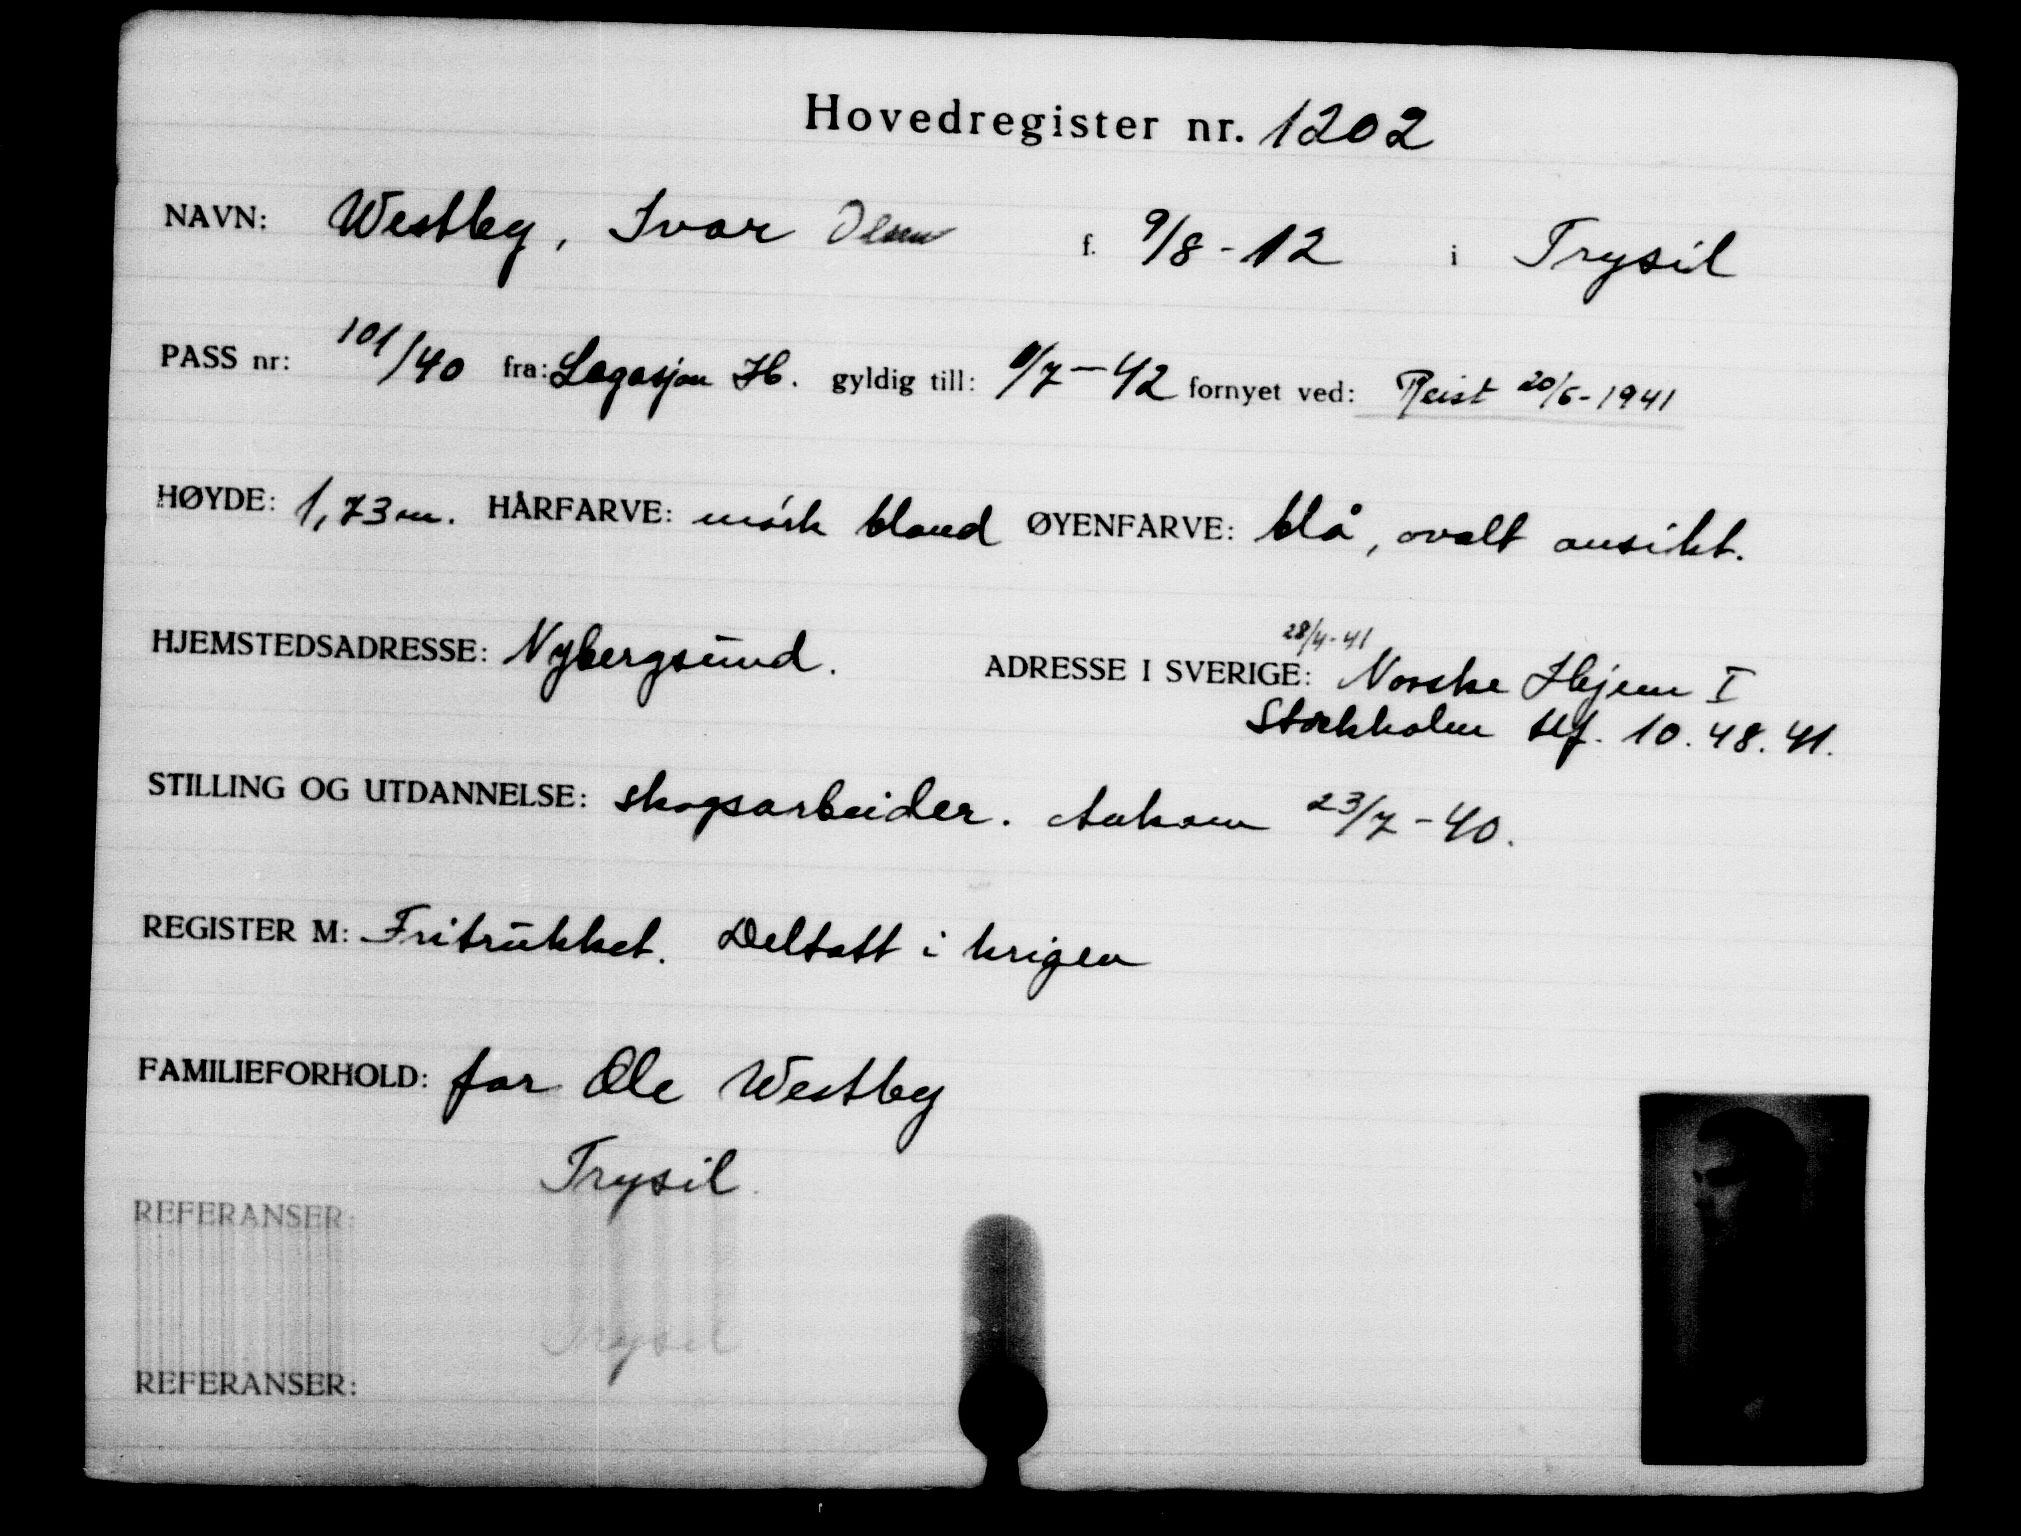 Hovedregister nr. 1202
NAVN: Westby, Ivar Olsen f. 9/8-12 i Trysil
PASS nr: 101/40 fra: Legasjon H. gyldig till: /7-42 fornyet ved: Reist 20/6-1941
HØYDE: 1,73 m. HÅRFARVE: mørk blond ØYENFARVE: blå, ovalt ansikt.
28/4-41
HJEMSTEDSADRESSE: Nybergsund. ADRESSE I SVERIGE: Norske Hjem I
Stockholm tlf. 10.48.41.
STILLING OG UTDANNELSE: skogsarbeider. Ankom 23/7-40.
REGISTER M: Fritrukket. Deltatt i krigen
FAMILIEFORHOLD: far Ole Westby
Trysil
REFERANSER:
Trysil
REFERANSER: